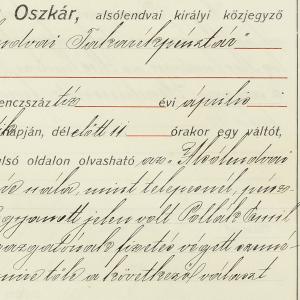 Oszkár, alsólendvai királyi közjegyző
Takarékpénztár"
encszáz tíz évi április
napján, dél előtt 11 órakor egy váltót,
lső oldalon olvasható az "Alsólendvai
nála, mint telepesnél, pénz-
Ugyanott jelen volt Pollák Emil
igazgatónak fizetés végett
mire tőle a következő választ